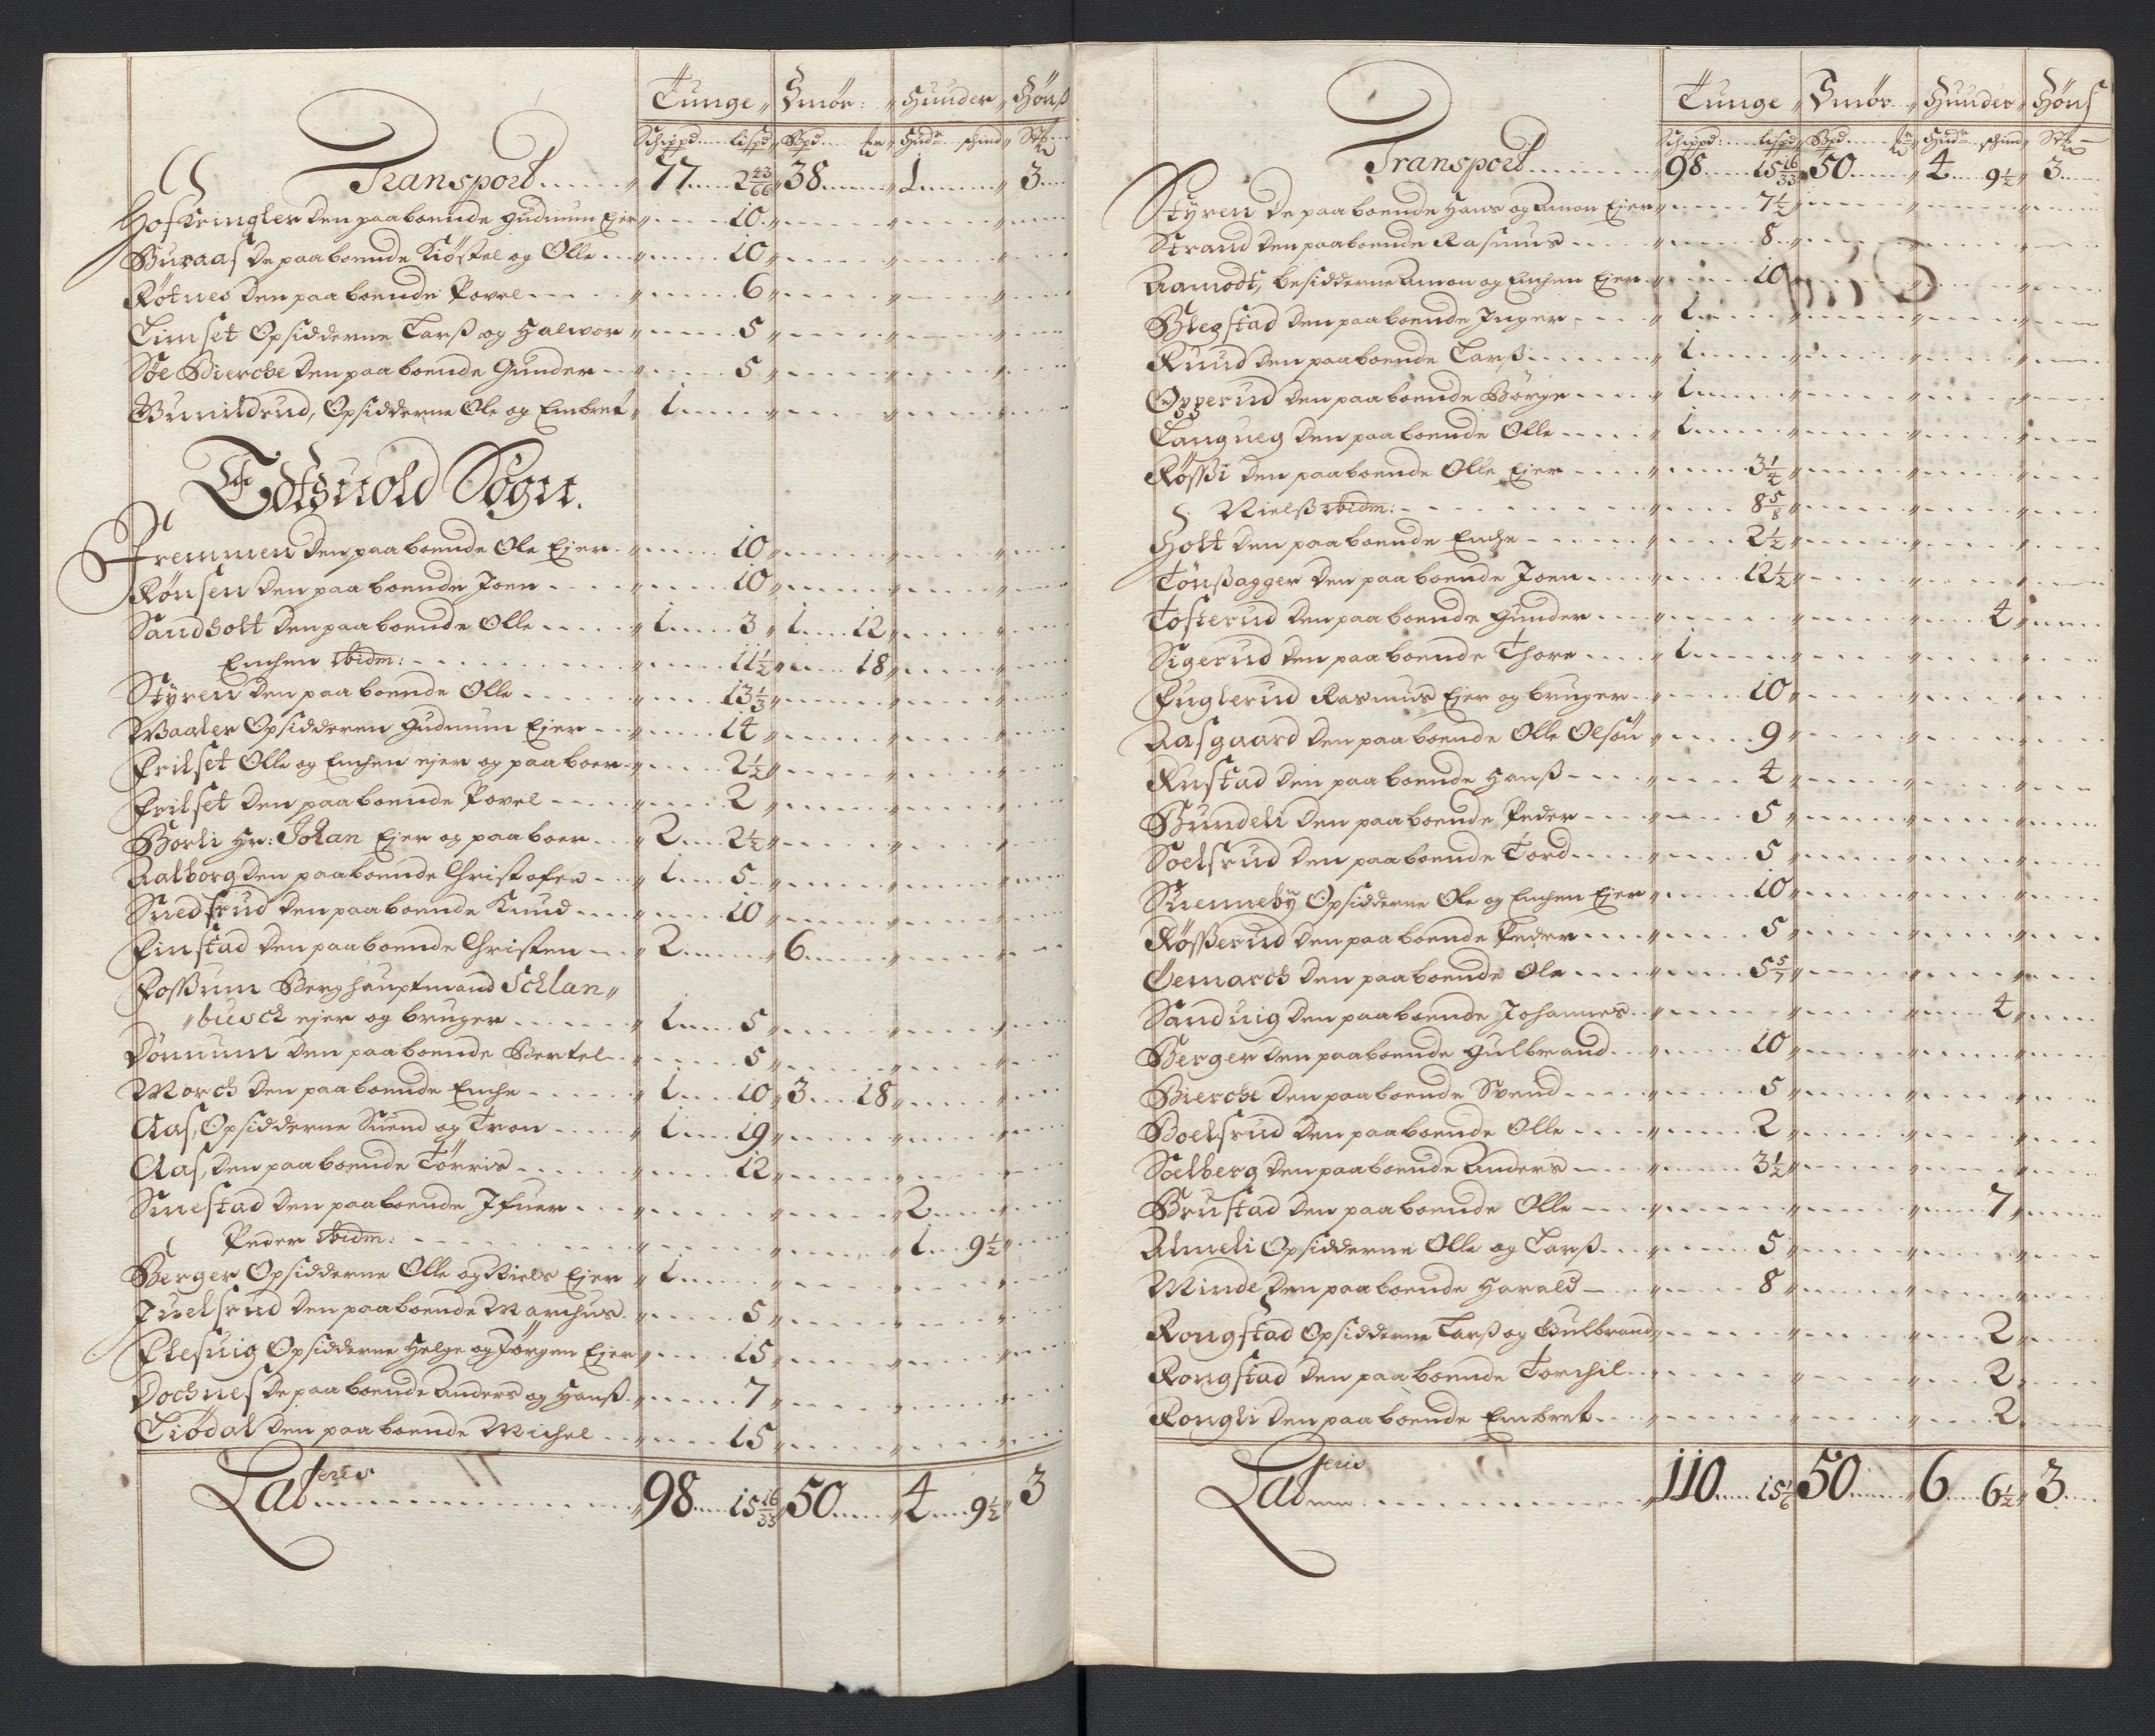 Tunge Smør: Huuder Høns
Schippd lispd Bpd Hud schind
Transport 77 2 43/66 38 1 3
Hofkringler den paaboende Gudmun Ejer 10
Buraas de paaboende Kiøstel og Olle 10
Røtnes den paaboende Povel 6
Timset Opsidderne Larß og Halwor 5
Søe Bierche den paaboende Gunder 5
Gunildrud, Opsidderne Ole og Embret 1
Edtsuold Sogn.
Fremmen den paaboende Ole Ejer 10
Rønsen den paaboende Joen 10
Sandholt den paaboende Olle 1 3 1 12
Enchen ibidm: 11 1/2 18
Styren den paaboende Olle 13 1/3
Waaler Opsidderen Gudmun Ejer 14
Frilset Olle og Enchen ejer og paaboer 2 1/2
Frilset den paaboende Povel 2
Borli Hr: Johan Ejer og paaboer 2 2 1/2
Aalborg den paaboende Christofer 1 5
Suedsrud den paaboende Knud 10
Finstad den paaboende Christen 2 6
Foßum Berghauptmand Schlan
busch ejer og bruger 1 5
Dønnum den paaboende Bertel 5
Morch den paaboende Enche 1 10 3 18
Aas, Opsidderne Suend og Tron 1 19
Aas, den paaboende Tørris 12
Smestad den paaboende Ifuer 2
Peder ibidm: 1 9 1/2
Berger Opsidderne Olle og Niels Ejer 1
Juelsrud den paaboende Marchus 5
Flesuig Opsidderne Helge og Jørgen Ejer 15
Dochnes de paaboende Anders og Hanß 7
Tiødal den paaboende Michel 15
Lateris 98 15 16/33 50 4 9 1/2 3
Tunge Smør Huuder Høns
Schippd: lispd Bpd Hud schind
Transport 98 15 16/33 50 4 9 1/2 3
Styren de paaboende Hans og Amon Ejer 7 1/2
Strand den paaboende Rasmus 8
Aamodt, besidderne Amon og Enchen Ejer 10
Blegstad den paaboende Inger 1
Ruud den paaboende Larß 1
Opperud den paaboende Børge 1
Langueg den paaboende Olle 1
Røssi den paaboende Olle Ejer 3 1/2
Nielß ibidm: 8 5/8
Holt den paaboende Enche 2 1/2
Tønßagger den paaboende Joen 12 1/2
Tosterud den paaboende Gunder 4
Sigerud den paaboende Thore 1
Fuglerud Rasmus Ejer og bruger 10
Aasgaard den paaboende Olle Olsøn 9
Rustad den paaboende Hanß 4
Bundeli den paaboende Peder 5
Soelsrud den paaboende Tord 5
Skenneby Opsidderne Ole og Enchen Ejer 10
Røßerud den paaboende Peder 5
Øemarch den paaboende Ole 5 5/7
Sanduig den paaboende Johannes 4
Berger den paaboende Gulbrand 10
Bierche den paaboende Svend 5
Boelsrud den paaboende Olle 2
Soelberg den paaboende Anders 3 1/2
Brustad den paaboende Olle 7
Almeli Opsidderne Olle og Larß 5
Minde den paaboende Harald 8
Rongstad Opsidderne Larß og Gulbrand 2
Rongstad den paaboende Torchil 2
Rongli den paaboende Embret 2
Lateris 110 15 1/6 50 6 6 1/2 3